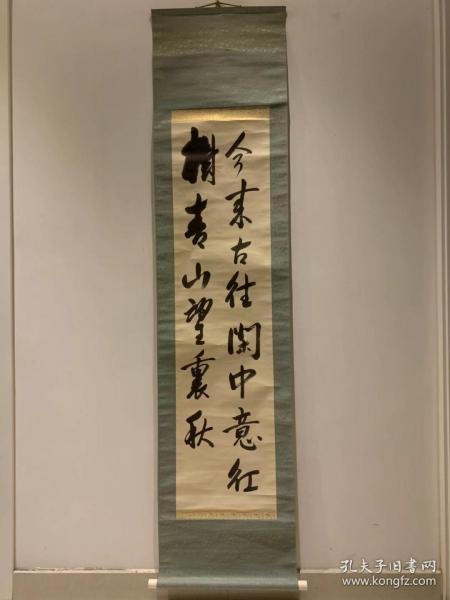 今来古往闲中意红
树青山望裏秋
孔夫子旧书网
www.kongfz.com